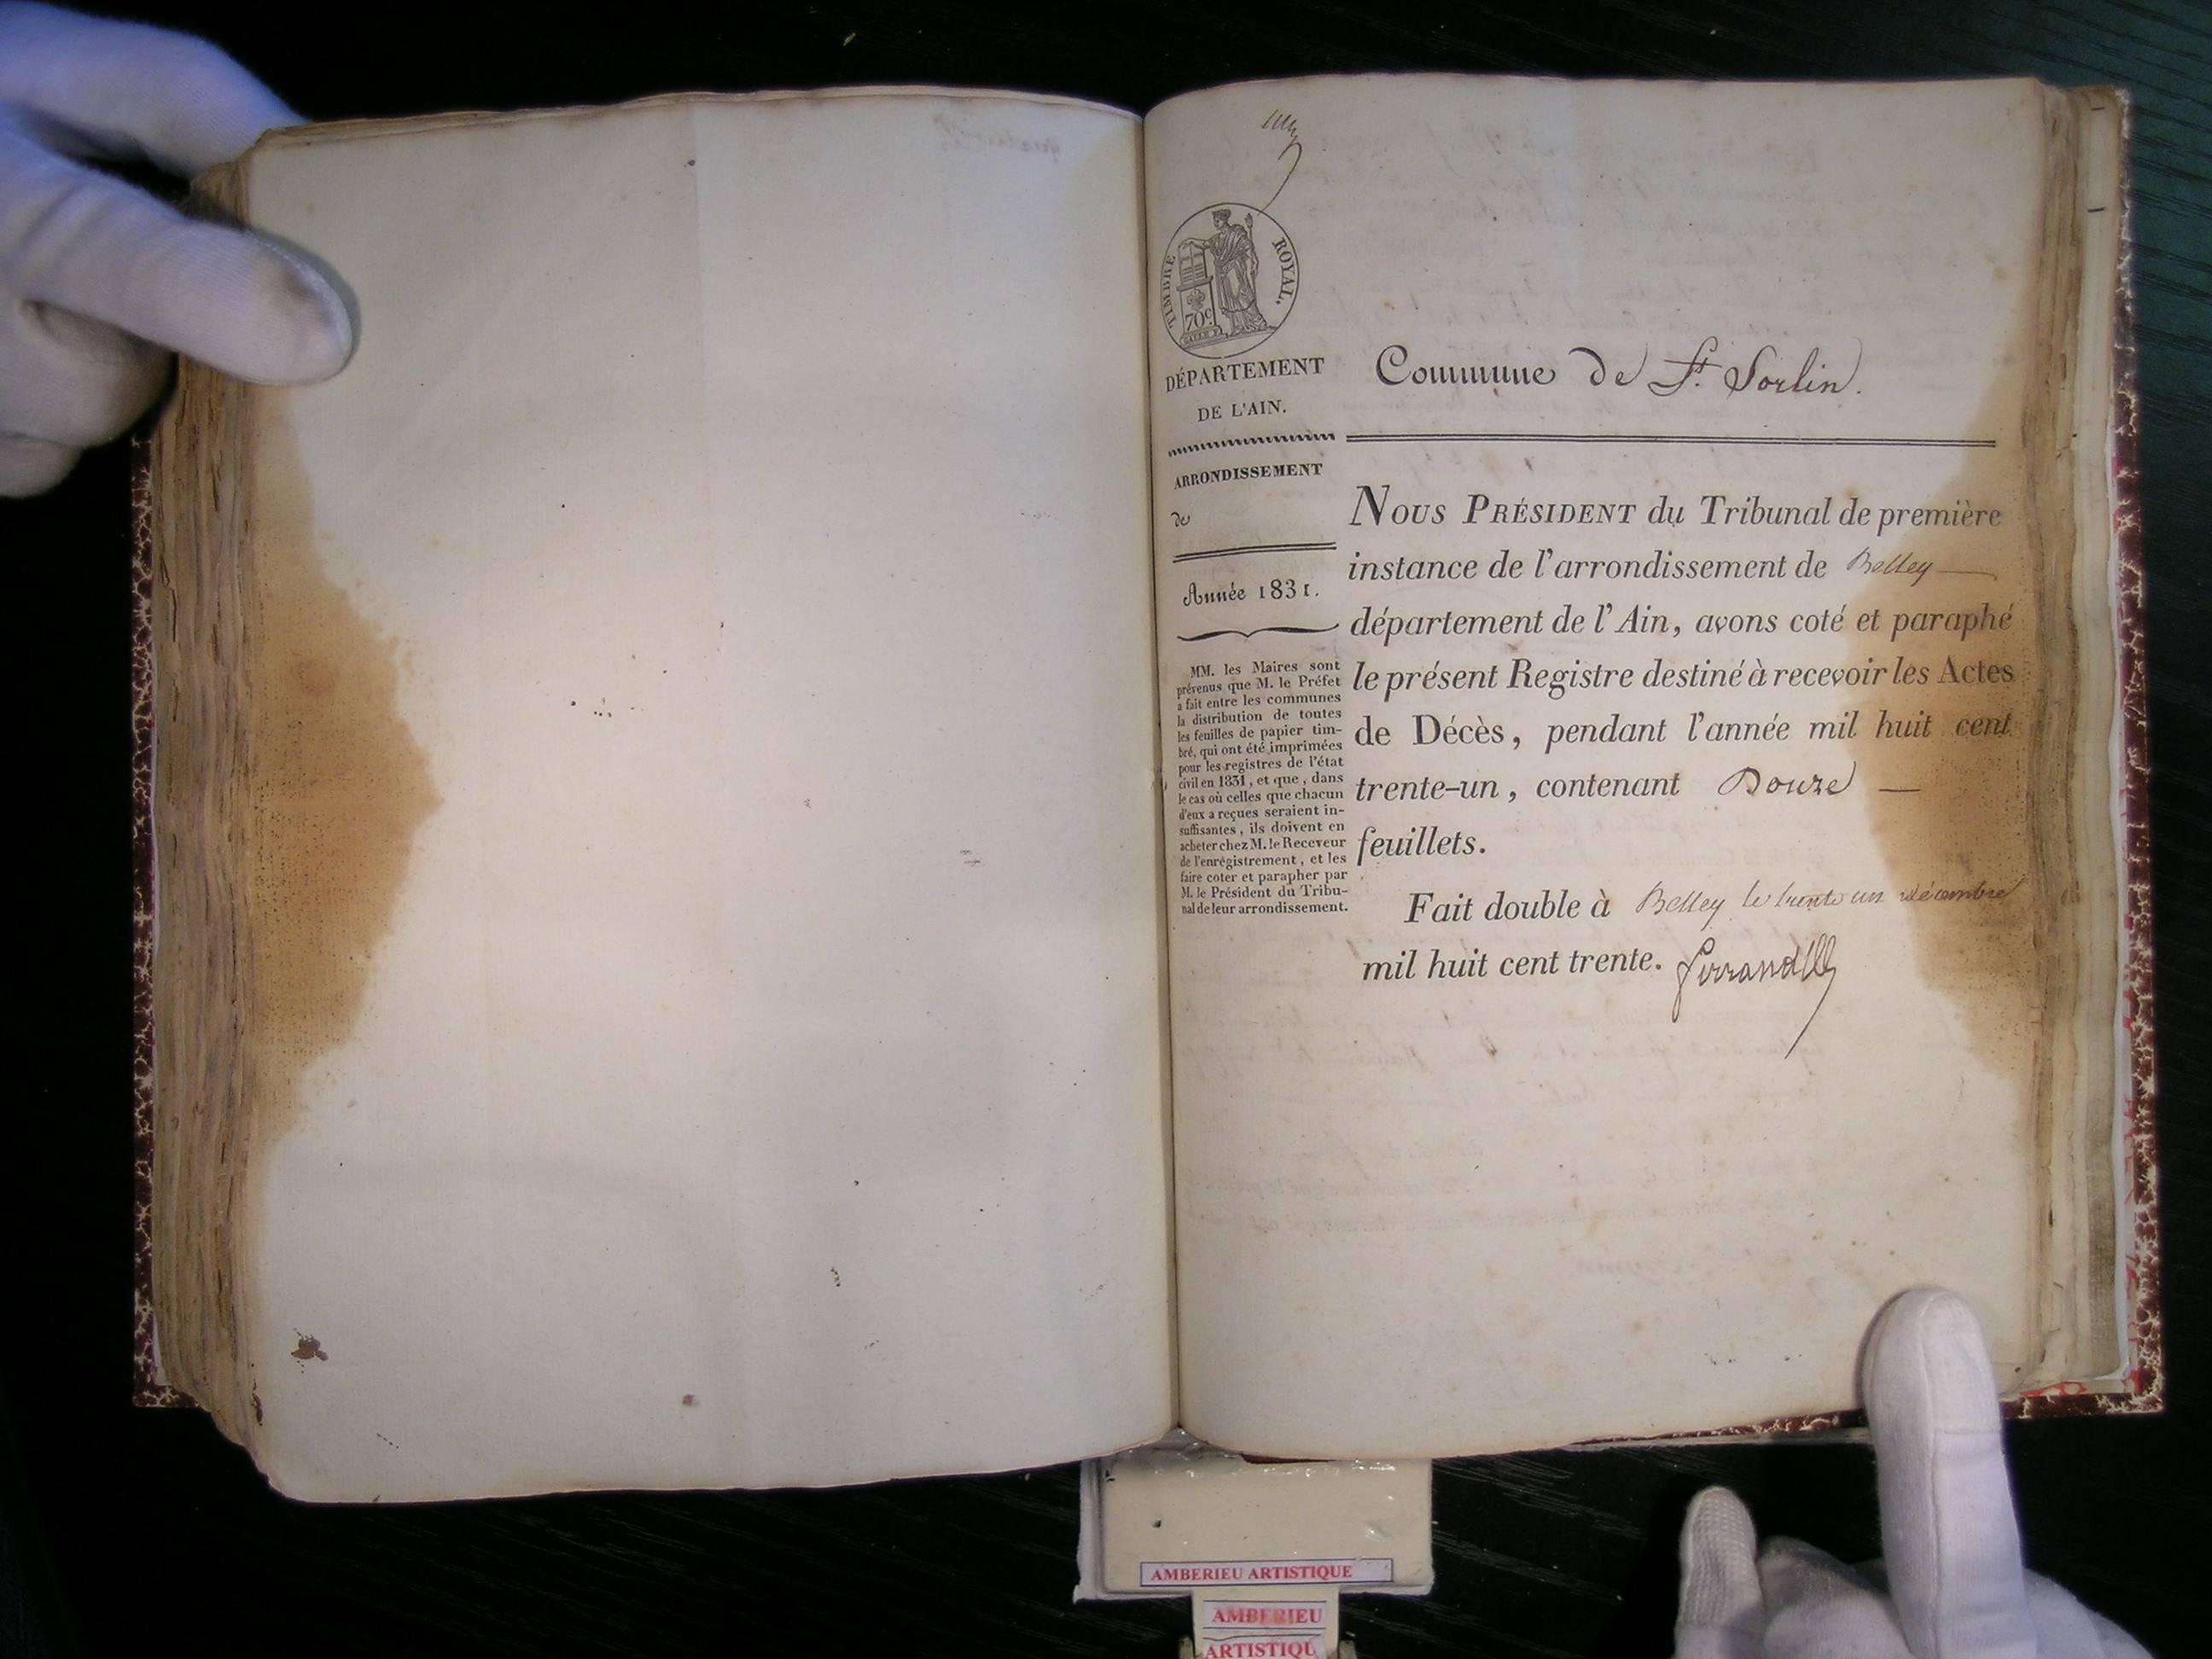 TIMBRE ROYAL.
70c
DÉPARTEMENT
DE L'AIN.
ARRONDISSEMENT
de
Année 1831.
MM. les Maires sont
prévenus que M. le Préfet
a fait entre les communes
la distribution de toutes
les feuilles de papier tim-
bré, qui ont été imprimées
pour les registres de l'état
civil en 1831, et que, dans
le cas où celles que chacun
d'eux a reçues seraient in-
suffisantes, ils doivent en
acheter chez M. le Receveur
de l'enregistrement, et les
faire coter et parapher par
M. le Président du Tribu-
nal de leur arrondissement.
Commune de St. Sorlin.
NOUS PRÉSIDENT du Tribunal de première
instance de l'arrondissement de Belley —
département de l'Ain, avons coté et paraphé
le présent Registre destiné à recevoir les Actes
de Décès, pendant l'année mil huit cent
trente-un, contenant Douze —
feuillets.
Fait double à Belley le trente un décembre
mil huit cent trente.
AMBERIEU ARTISTIQUE
AMBERIEU
ARTISTIQU